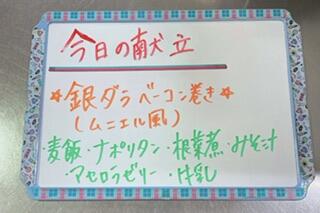 今日の献立
★銀ダラベーコン巻き★
(ムニエル風)
・麦飯・ナポリタン・根菜煮・みそ汁
・アセロラゼリー・牛乳